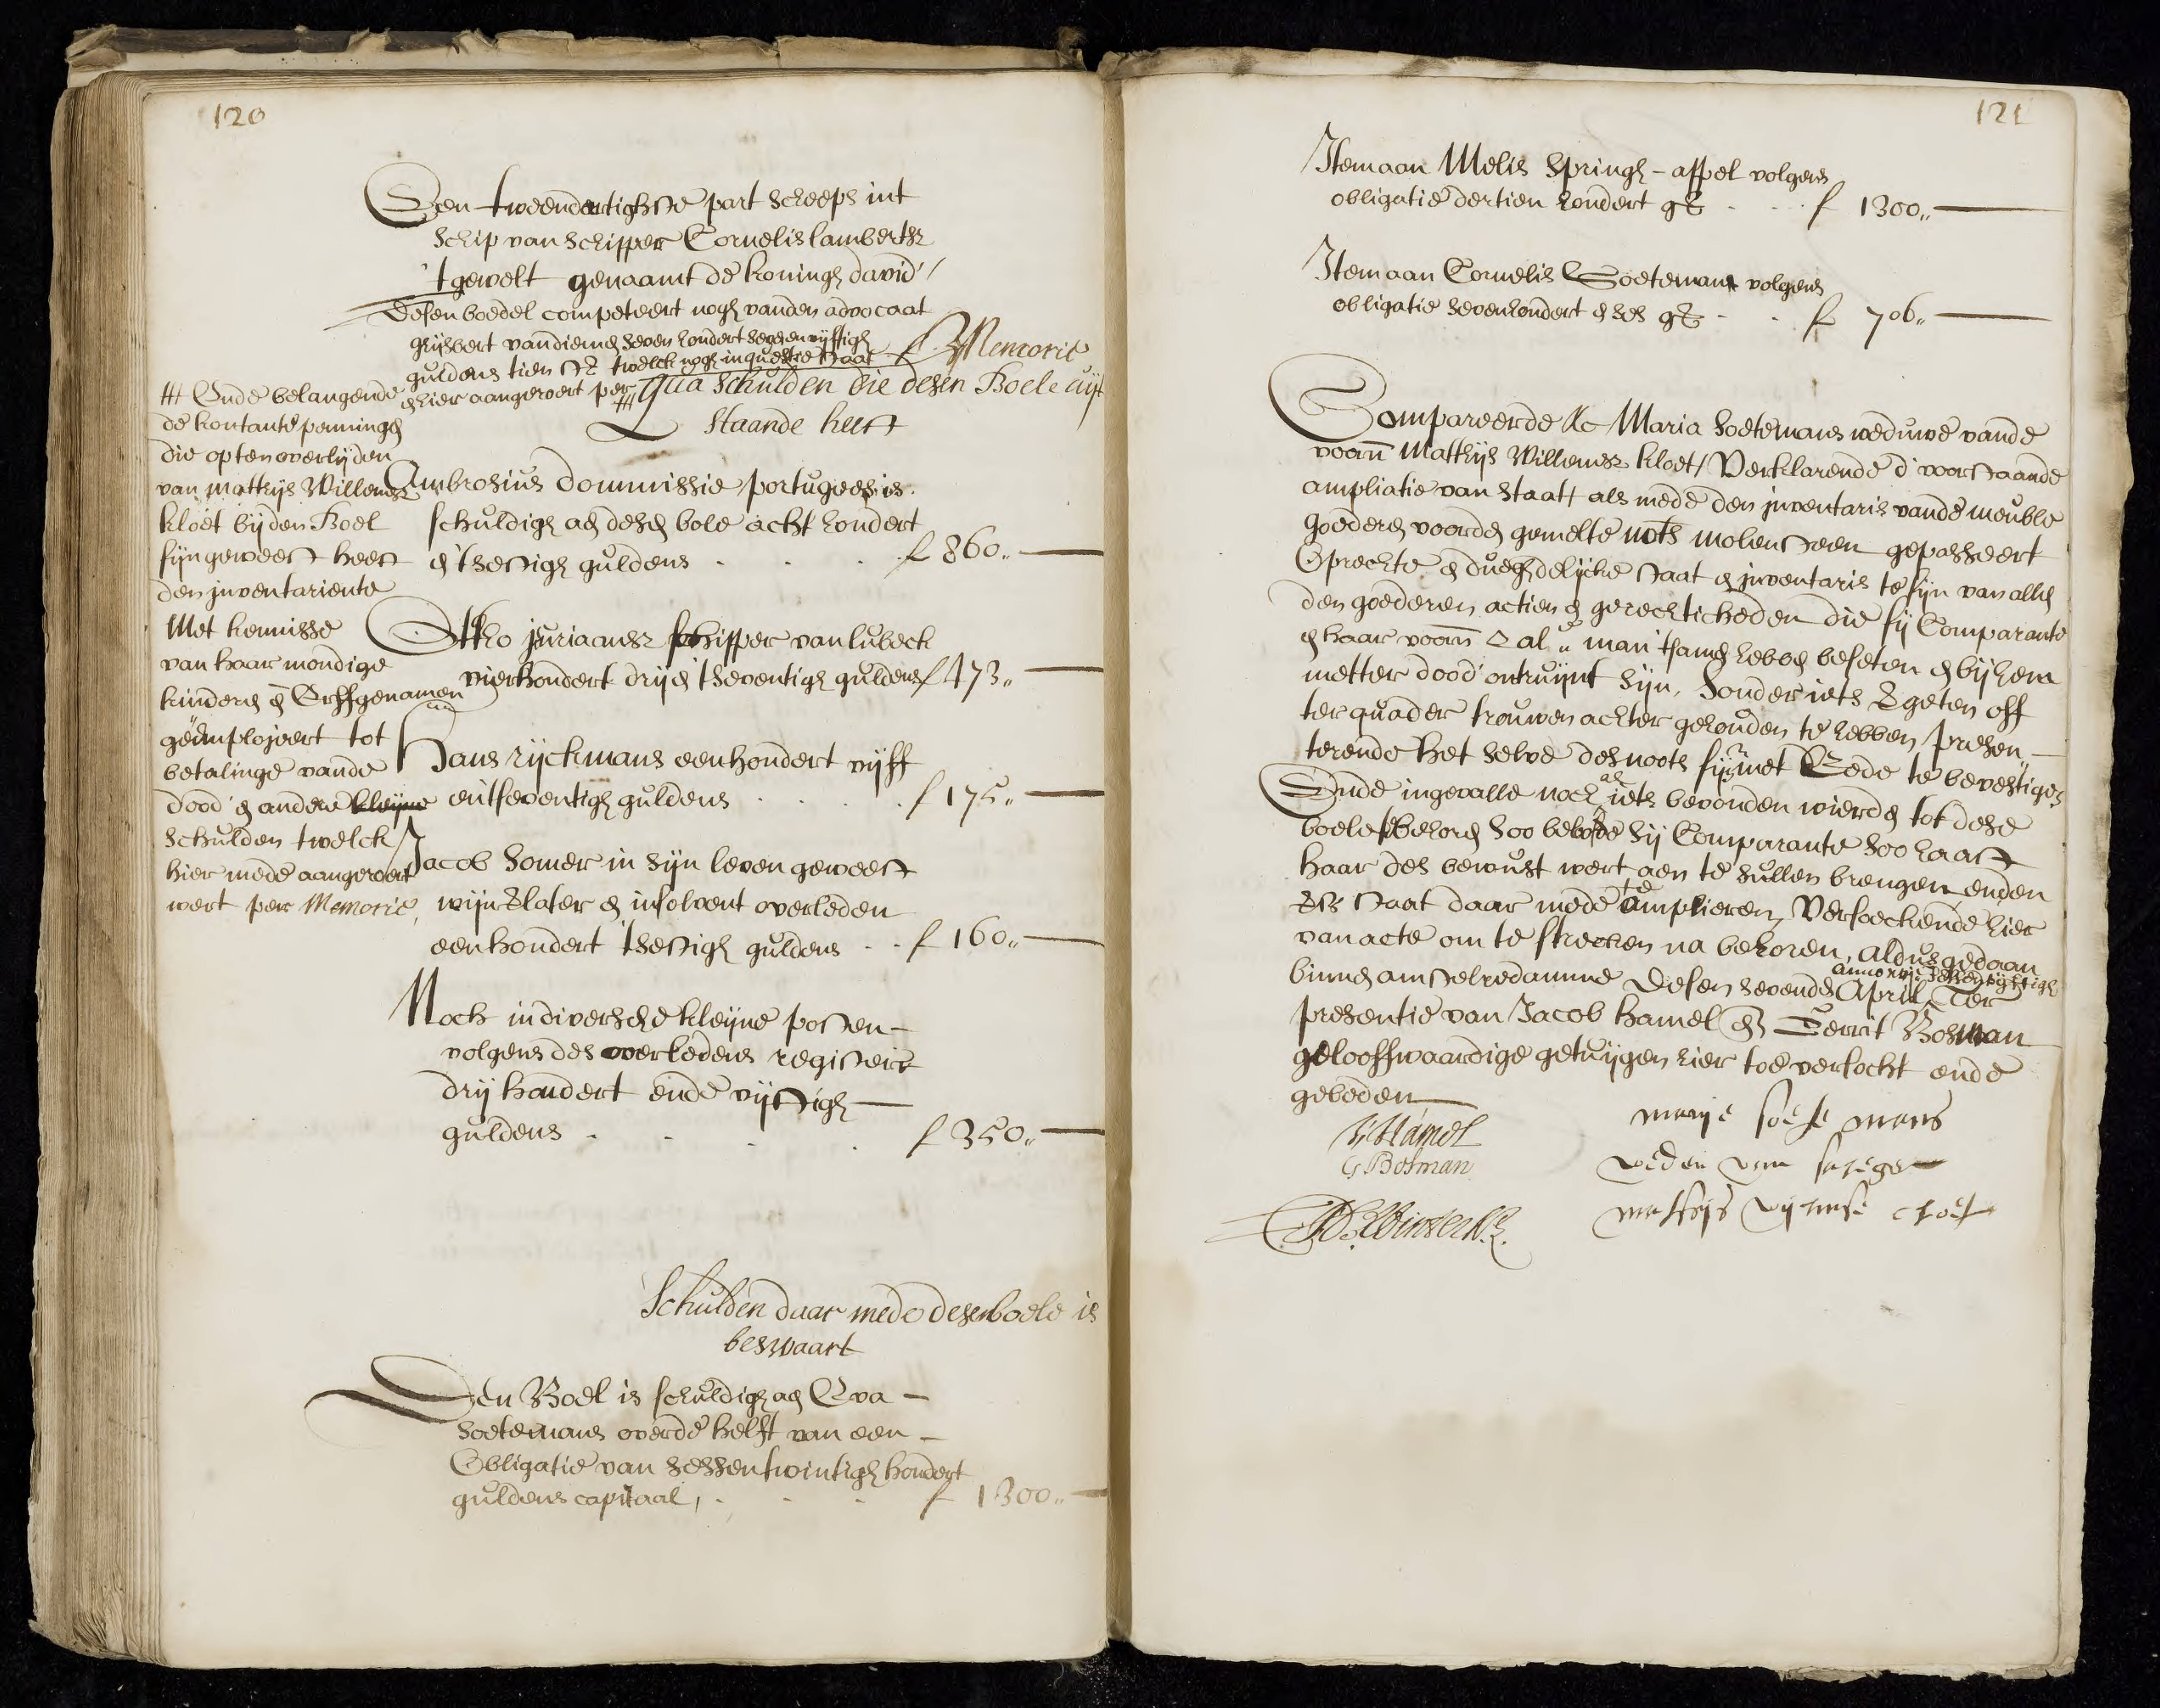 120
Een tweendertichste part scheeps int
schip van schipper Cornelis lambertsz
'tgewelt genaamt de koningh david /
Desen boedel competeert nogh vanden advocaat
Ghijsbert van diemen seven hondert sevenenvijftigh
guldens tien st twelck nogh in questie staat
ende hier aangeroert per ƒ Memorie
# Qua schulden die desen Boele uijt
staande heeft
# Ende belangende
de kontante penningen
die opten overlijden
van matthijs Willemsz
kloet bijden Boel
sijn geweest heeft
den inventariente
Met kennisse
van haar mondige
kinderen en Erffgenamen
geëmploijeert tot
betalinge vande
dood en andere kleijne
schulden twelck
hier mede aangeroert
wert per Memorie,
Ambrosius dommissie portugees is
schuldigh aen desen bole acht hondert
en 'tsestigh guldens . . . ƒ 860,,
Otto juriaansz schipper van lubeck
vierhondert drijen 'tseventigh guldens ƒ 473,,
Hans rijckmans eenhondert vijff
entseventigh guldens . . . . ƒ 175,,
Jacob Somer in sijn leven geweest
wijnslater en insolvent overleden
eenhondert 'tsestigh guldens . . ƒ 160,,
Noch in diversche kleijne posten
volgens des overledens registers
drij hondert ende vijftigh
guldens . . . . ƒ 350,,
Schulden daar mede desen boele is
beswaart
Den Boel is schuldigh aen Eva
soetemans over de helft van een
Obligatie van sessentwintigh hondert
guldens capitaal, . . . ƒ 1300,,
121
Item aan Melis Springh-appel volgens
obligatie dertien hondert gl . . . ƒ 1300,,
Item aan Cornelis Soetemans volgens
obligatie sevenhondert en ses gl . . ƒ 706,,
Compareerde &c Maria soetemans weduwe vande
voorn Matthijs Willemsz kloet / Verklarende d' voorstaande
ampliatie van staat als mede den inventaris vande meuble
goederen voorden gemelte nots molensteen gepasseert
Oprechte en deughdelijcke staat en inventaris te sijn van allen
den goederen actien en gerechticheden die sij Comparante
en haar voorn zal: man 'tsamen hebben beseten en bij hem
metter dood ontruijmt sijn, sonder iets vergeten off
ter quader trouwen achter gehouden te hebben, presen-
terende het selve des noots sijnde met Eede te bevestigen
Ende ingevalle noch als iets bevonden wierden tot dese
boele te behoren soo beloofde sij Comparante soo haast
haar des bewust wert aen te sullen brengen ende den
staat daar mede te amplieren, Versoeckende hier
van acte om te strecken na behoren, aldus gedaan
anno xvjc sessenvijftigh
binnen amstelredamme desen sevenden April, Ter
presentie van Jacob hamel en Gerrit Bosman
gelooffwaardige getuijgen hier toe versocht ende
gebeden
J. Hamel
G Bosman
marije soete mans
weden van saleger
mattijs wijlmse cloet